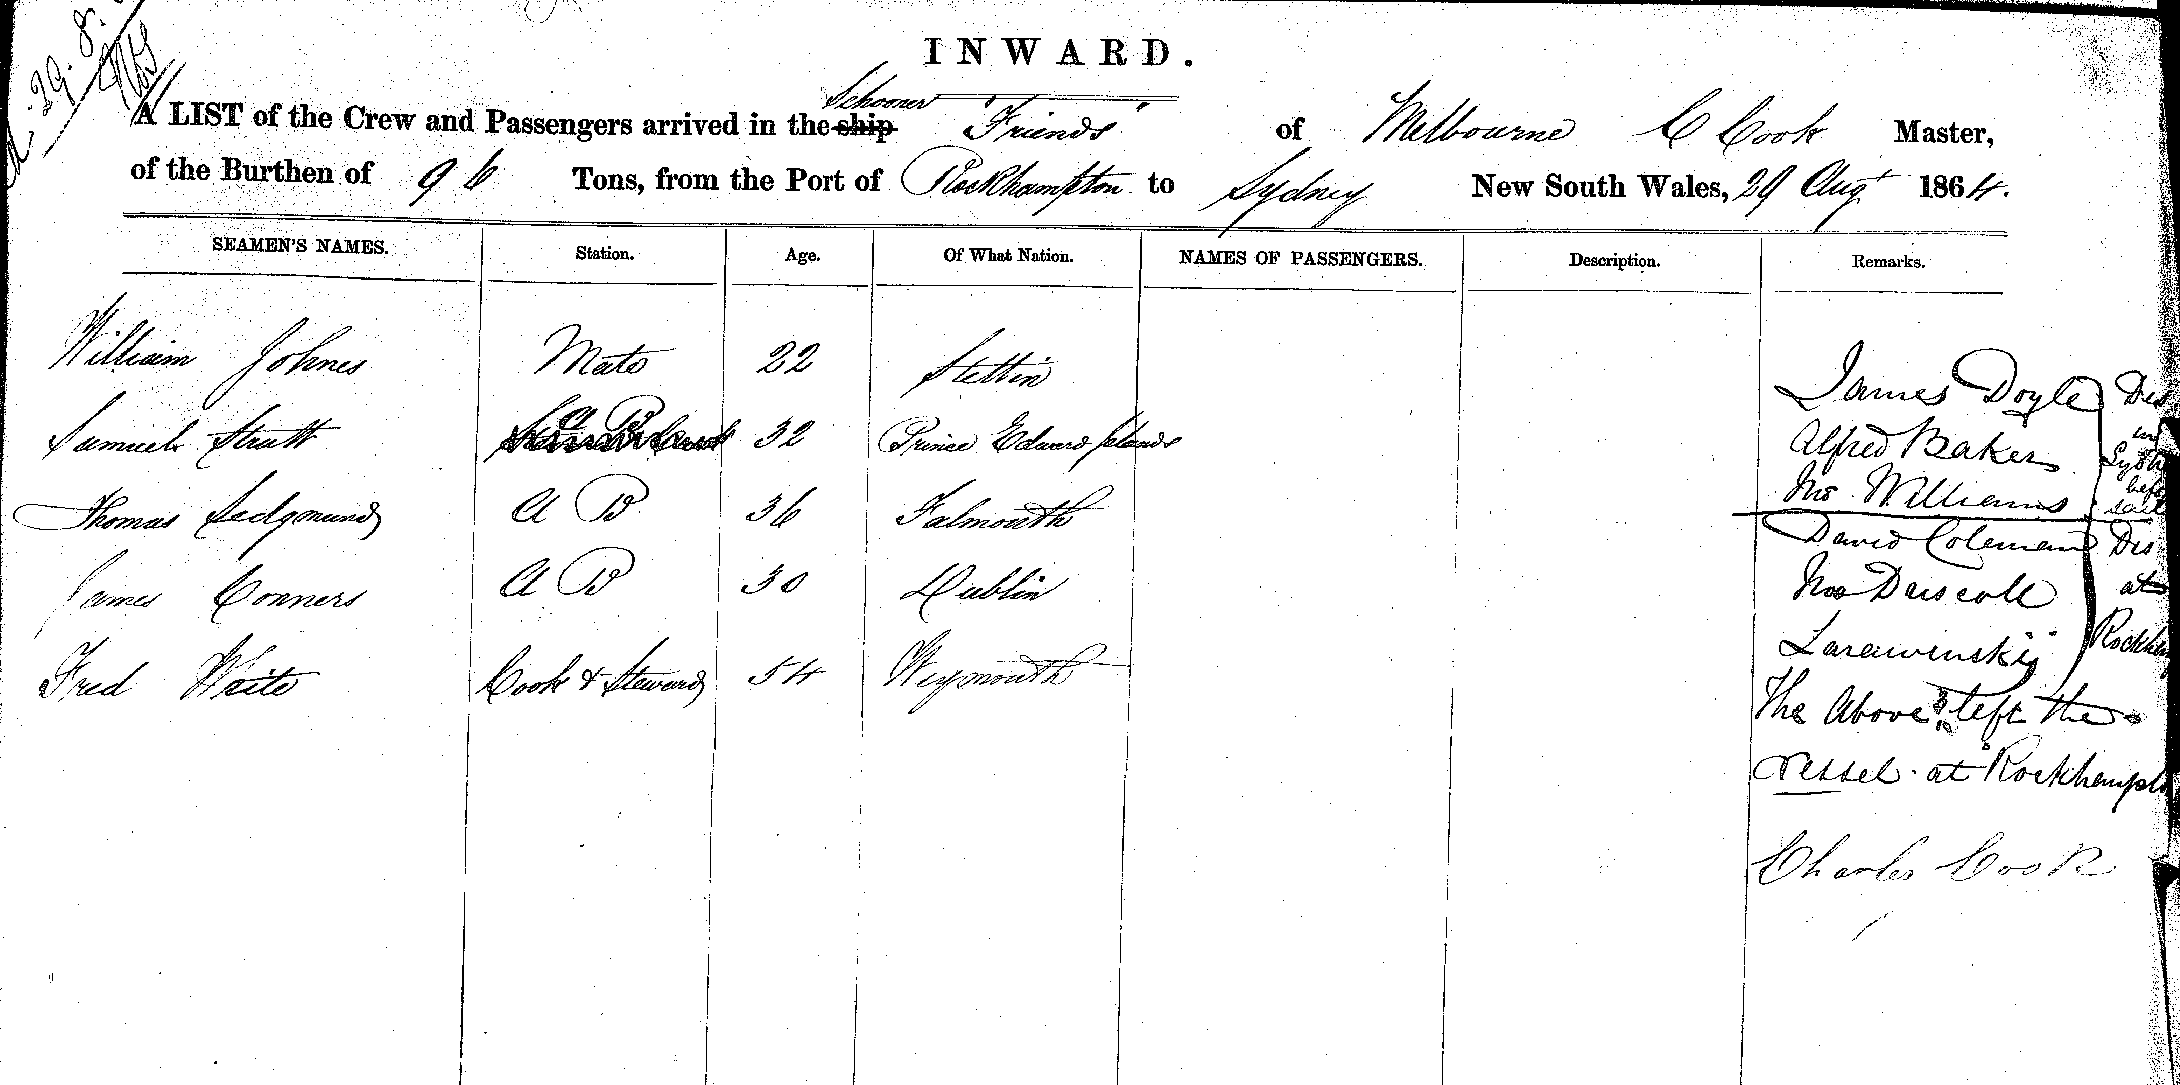 29.8.
INWARD.
Schooner
A LIST of the Crew and Passengers arrived in the ship "Friends" of Melbourne C Cook Master,
of the Burthen of 96 Tons, from the Port of Rockhampton to Sydney New South Wales, 29 Augt 1864.
SEAMEN'S NAMES. Station. Age. Of What Nation. NAMES OF PASSENGERS. Description. Remarks.
William Johnes Mate 22 Stettin
Samuel Strutt A B 32 Prince Edward Islands
Thomas Sedgmund A B 36 Falmouth
James Conners A B 30 Dublin
Fred White Cook & Steward 54 Weymouth
James Doyle Dis
Alfred Baker in
Williams
David Coleman Dis
Driscoll at
Rockham
The Above 3 left the
vessel at Rockhampto
Charles Cook